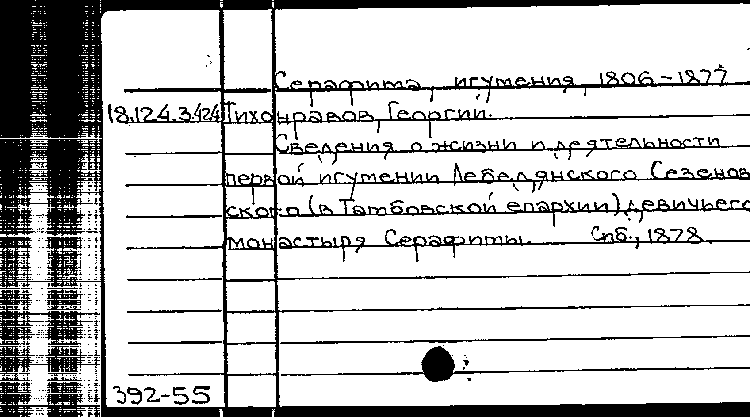 Серафима, игумения, 1806-1877
18.124.3.424 Тихонравов, Георгий.
Сведения о жизни и деятельности
первой игумении Лебедянского Сезенов
ского (в Тамбовской епархии) девичьего
монастыря Серафимы. Спб., 1878.
392-55